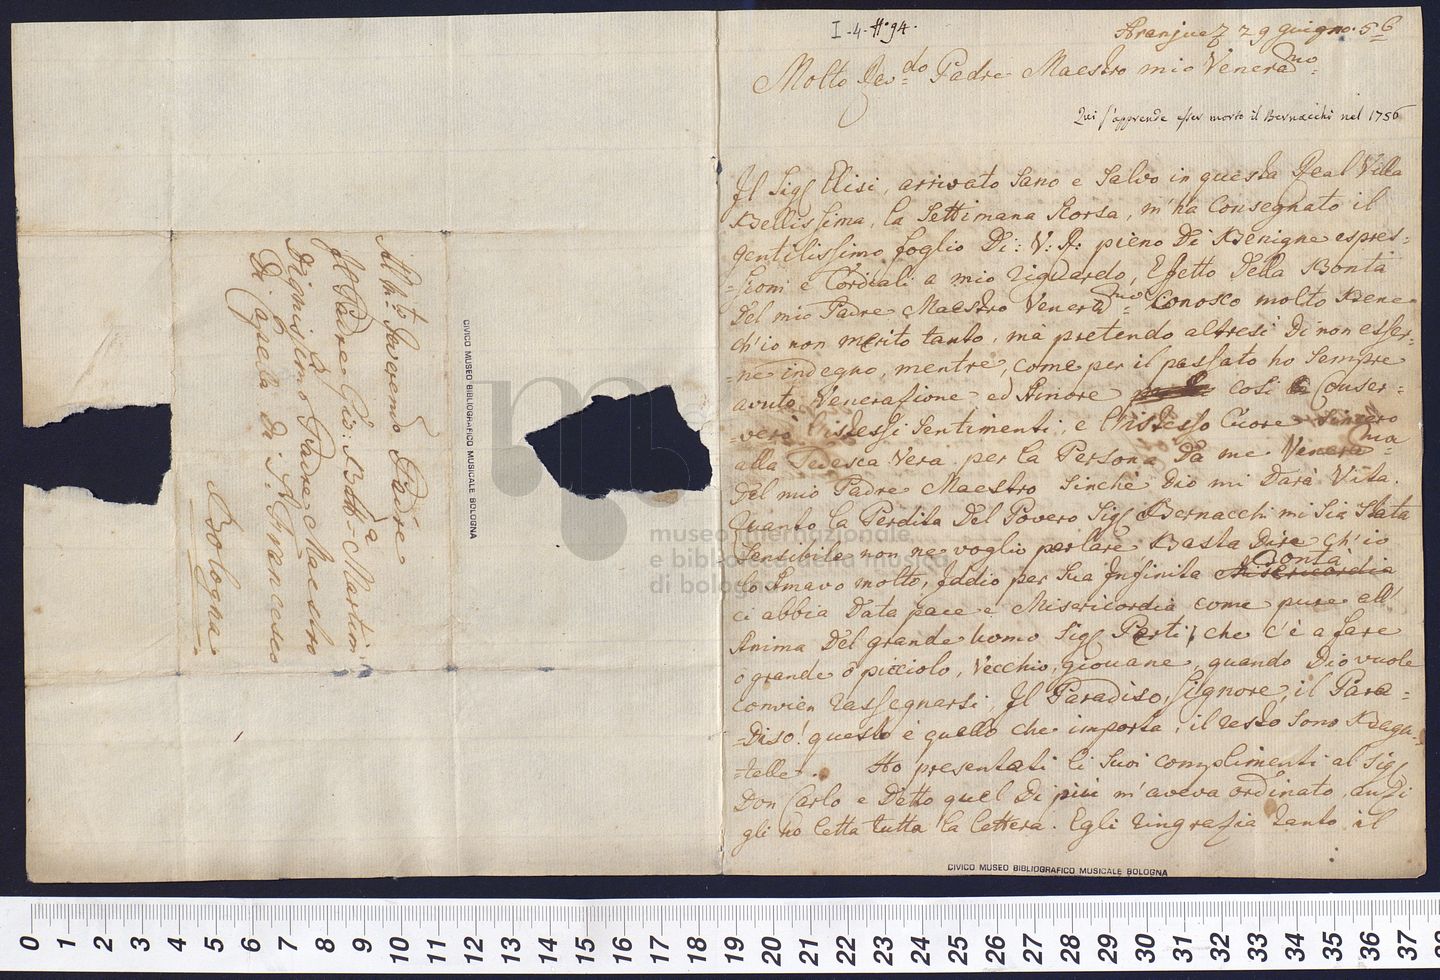 I-4-H.94.
Aranjuez 29 giugno. 56
Molto Rev.do Padre Maestro mio Venera.mo
Qui s'apprende esser morto il Bernacchi nel 1756
Il Sig.r Elisi, arrivato Sano e Salvo in questa Real Villa
Bellissima, la Settimana Scorsa, m'ha Consegnato il
gentilissimo foglio Di: V: R: pieno Di Benigne espres=
=sioni e Cordiali a mio riguardo, Effetto Della Bontà
Del mio Padre Maestro Venera.mo Conosco molto Bene
ch'io non merito tanto, mà pretendo altresì Di non esser=
=ne indegno, mentre, come per il passato ho Sempre
avuto Venerazione ed Amore così Conser=
=verò l'istessi Sentimenti, e l'istesso Cuore Sincero
alla Tedesca Vera per la Persona Da me Venera.ma
Del mio Padre Maestro Sinchè Dio mi Darà Vita.
Quanto la Perdita Del Povero Sig.r Bernacchi mi Sia Stata
Sensibile non ne voglio parlare Basta Dire ch'io
lo Amavo molto, Iddio per Sua Infinita Misericordia Bontà
ci abbia Data pace e Misericordia come pure all'
Anima Del grande Uomo Sig.r Perti, che c'è a fare
ò grande ò picciolo, Vecchio, giovane, quando Dio vuole
convien rassegnarsi, Il Paradiso, Signore, il Para=
=Diso! questo è quello che importa, il resto Sono Baga=
=telle. Ho presentati li Suoi complimenti al Sig.r
Don Carlo e Detto quel Di più m'aveva ordinato, anzi
gli ho letta tutta la lettera. Egli ringrazia tanto il
Al M.to Reverendo Padre
Il Padre Gio: Batt.a Martini
Dignis.mo Padre Maestro
Di Capella di S. Francesco
Bologna
CIVICO MUSEO BIBLIOGRAFICO MUSICALE BOLOGNA
CIVICO MUSEO BIBLIOGRAFICO MUSICALE BOLOGNA
museo internazionale
e biblioteca della musica
di bologna
0 1 2 3 4 5 6 7 8 9 10 11 12 13 14 15 16 17 18 19 20 21 22 23 24 25 26 27 28 29 30 31 32 33 34 35 36 37 38